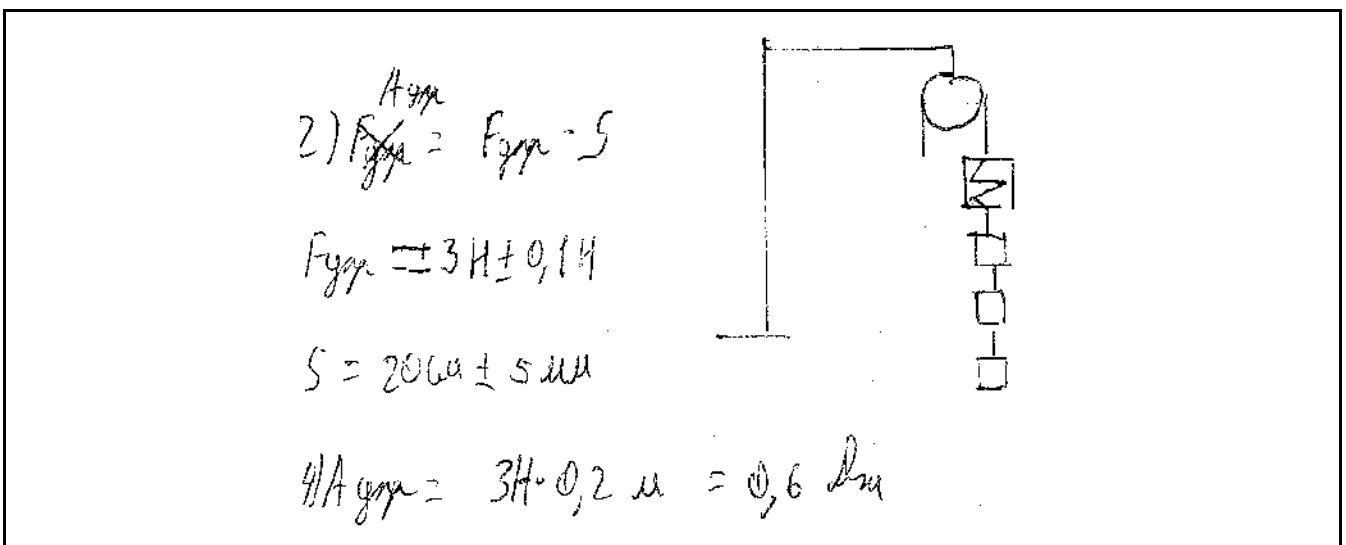 A упр
2) F упр = F упр · S
F упр = 3 Н ± 0,1 Н
S = 20 см ± 5 мм
4) A упр = 3Н · 0,2 м = 0,6 Дж